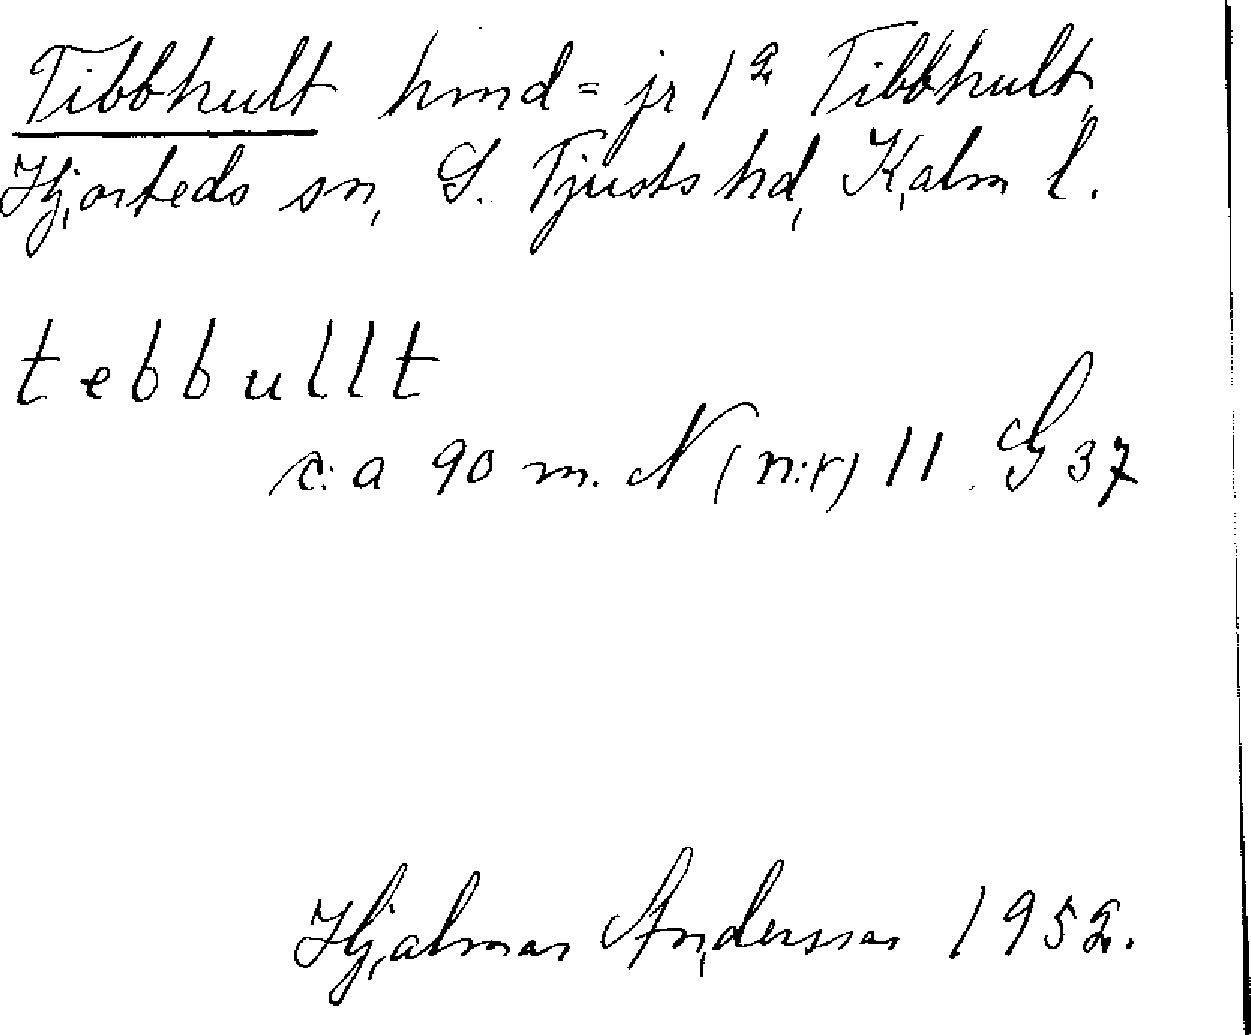 Tibbhult hmd = jr 1² Tibbhult,
Hjorteds sn, S. Tjusts hd, Kalm l.
tebbullt
c:a 90 m. N (n:r) 11. G 37
Hjalmar Andersson 1952.